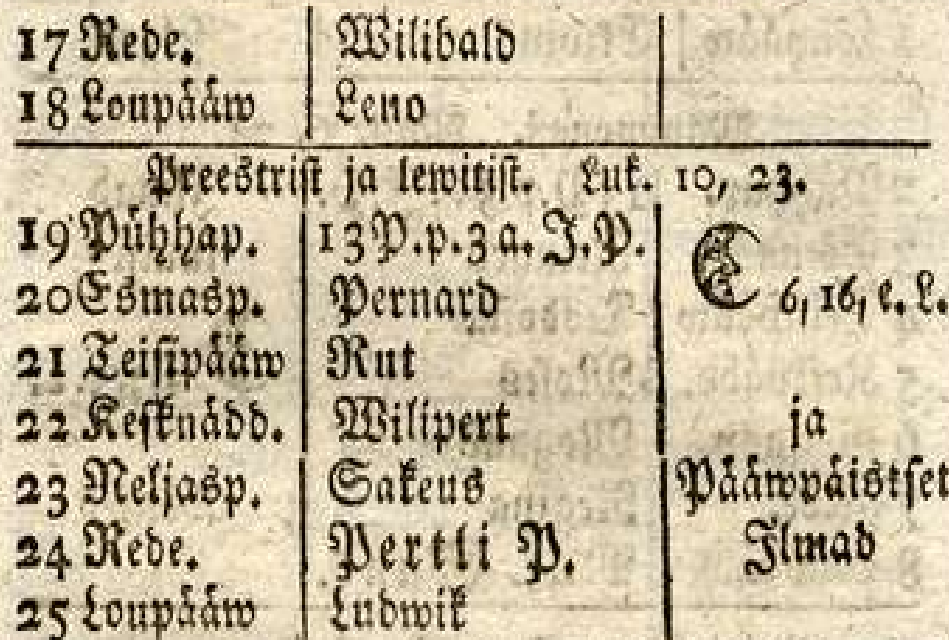 17 Rede. Wilibald
18 Loupääw Leno
Preestrist ja lewitist. Luk. 10, 23.
19 Pühhap. 13 P. p. 3 a. J. P.
20 Esmasp. Pernard 6, 16, e. L.
21 Teisipääw Rut
22 Kesknädd. Wilipert ja
23 Neljasp. Sakeus Pääwpäistset
24 Rede. Pertli P. Ilmad
25 Loupääw Ludwik